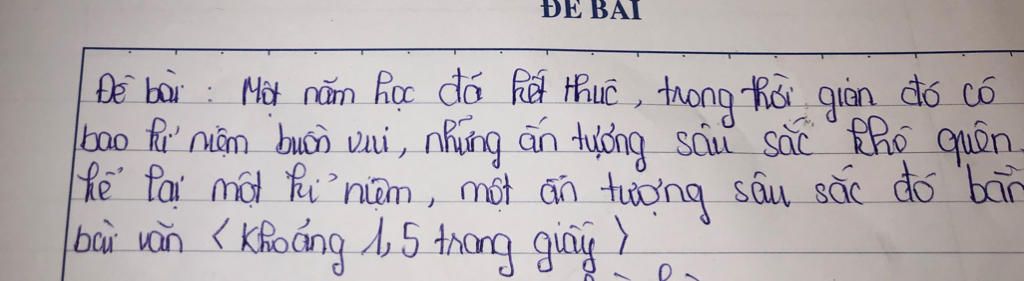 ĐỀ BÀI
Đề bài : Một năm học đã kết thúc, trong thời gian đó có
bao kỉ niệm buồn vui, những ấn tượng sâu sắc khó quên.
Kể lại một kỉ niệm, một ấn tượng sâu sắc đó bằn
bài văn < khoảng 1,5 trang giấy >